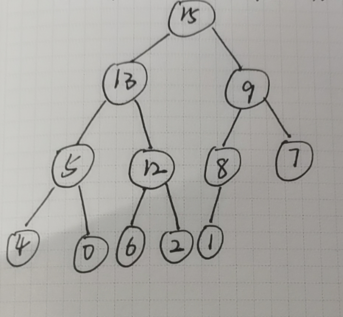 15
13 9
5 12 8 7
4 0 6 2 1